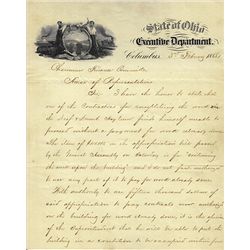 State of Ohio
Executive Department.
Columbus, 5th February 186
Chairman Finance Committee
House of Representatives
Sir: I have the honor to state that
one of the Contractors for completing the work on
the and Asylum finds himself unable to
proceed without payment for work already done.
The item of in the appropriation bill passed
by the General Assembly on Saturday is for "continuing
the work upon the building" and I do not feel authorized
to use any part of it to pay for work already done.
With authority to use fifteen thousand dollars of
said appropriation to pay contracts now outstanding
on the building for work already done, it is the opinion
of the Superintendent that he will be able to put the
building in a condition to be occupied within four